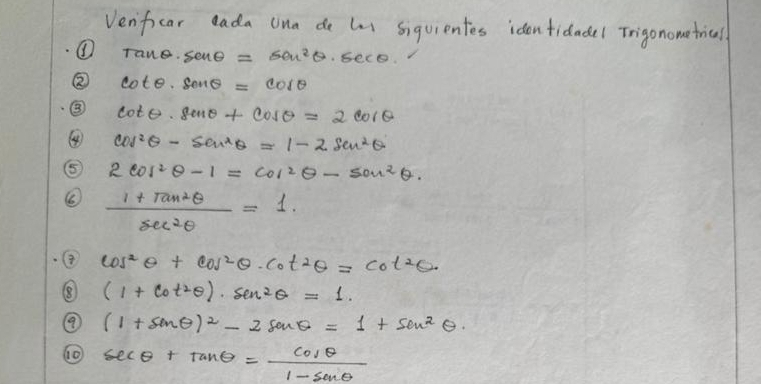 Verificar cada una de las siguientes identidades Trigonometricas.
① Tanθ . senθ = sen²θ . secθ . ✓
② cotθ . senθ = cosθ
③ cotθ . senθ + cosθ = 2 cosθ
④ cos²θ - sen²θ = 1 - 2 sen²θ
⑤ 2 cos²θ - 1 = cos²θ - sen²θ.
⑥ 1 + Tan²θ / sec²θ = 1.
⑦ cos²θ + cos²θ . cot²θ = cot²θ.
⑧ (1 + cot²θ) . sen²θ = 1.
⑨ (1 + senθ)² - 2 senθ = 1 + sen²θ.
⑩ secθ + Tanθ = cosθ / 1 - senθ